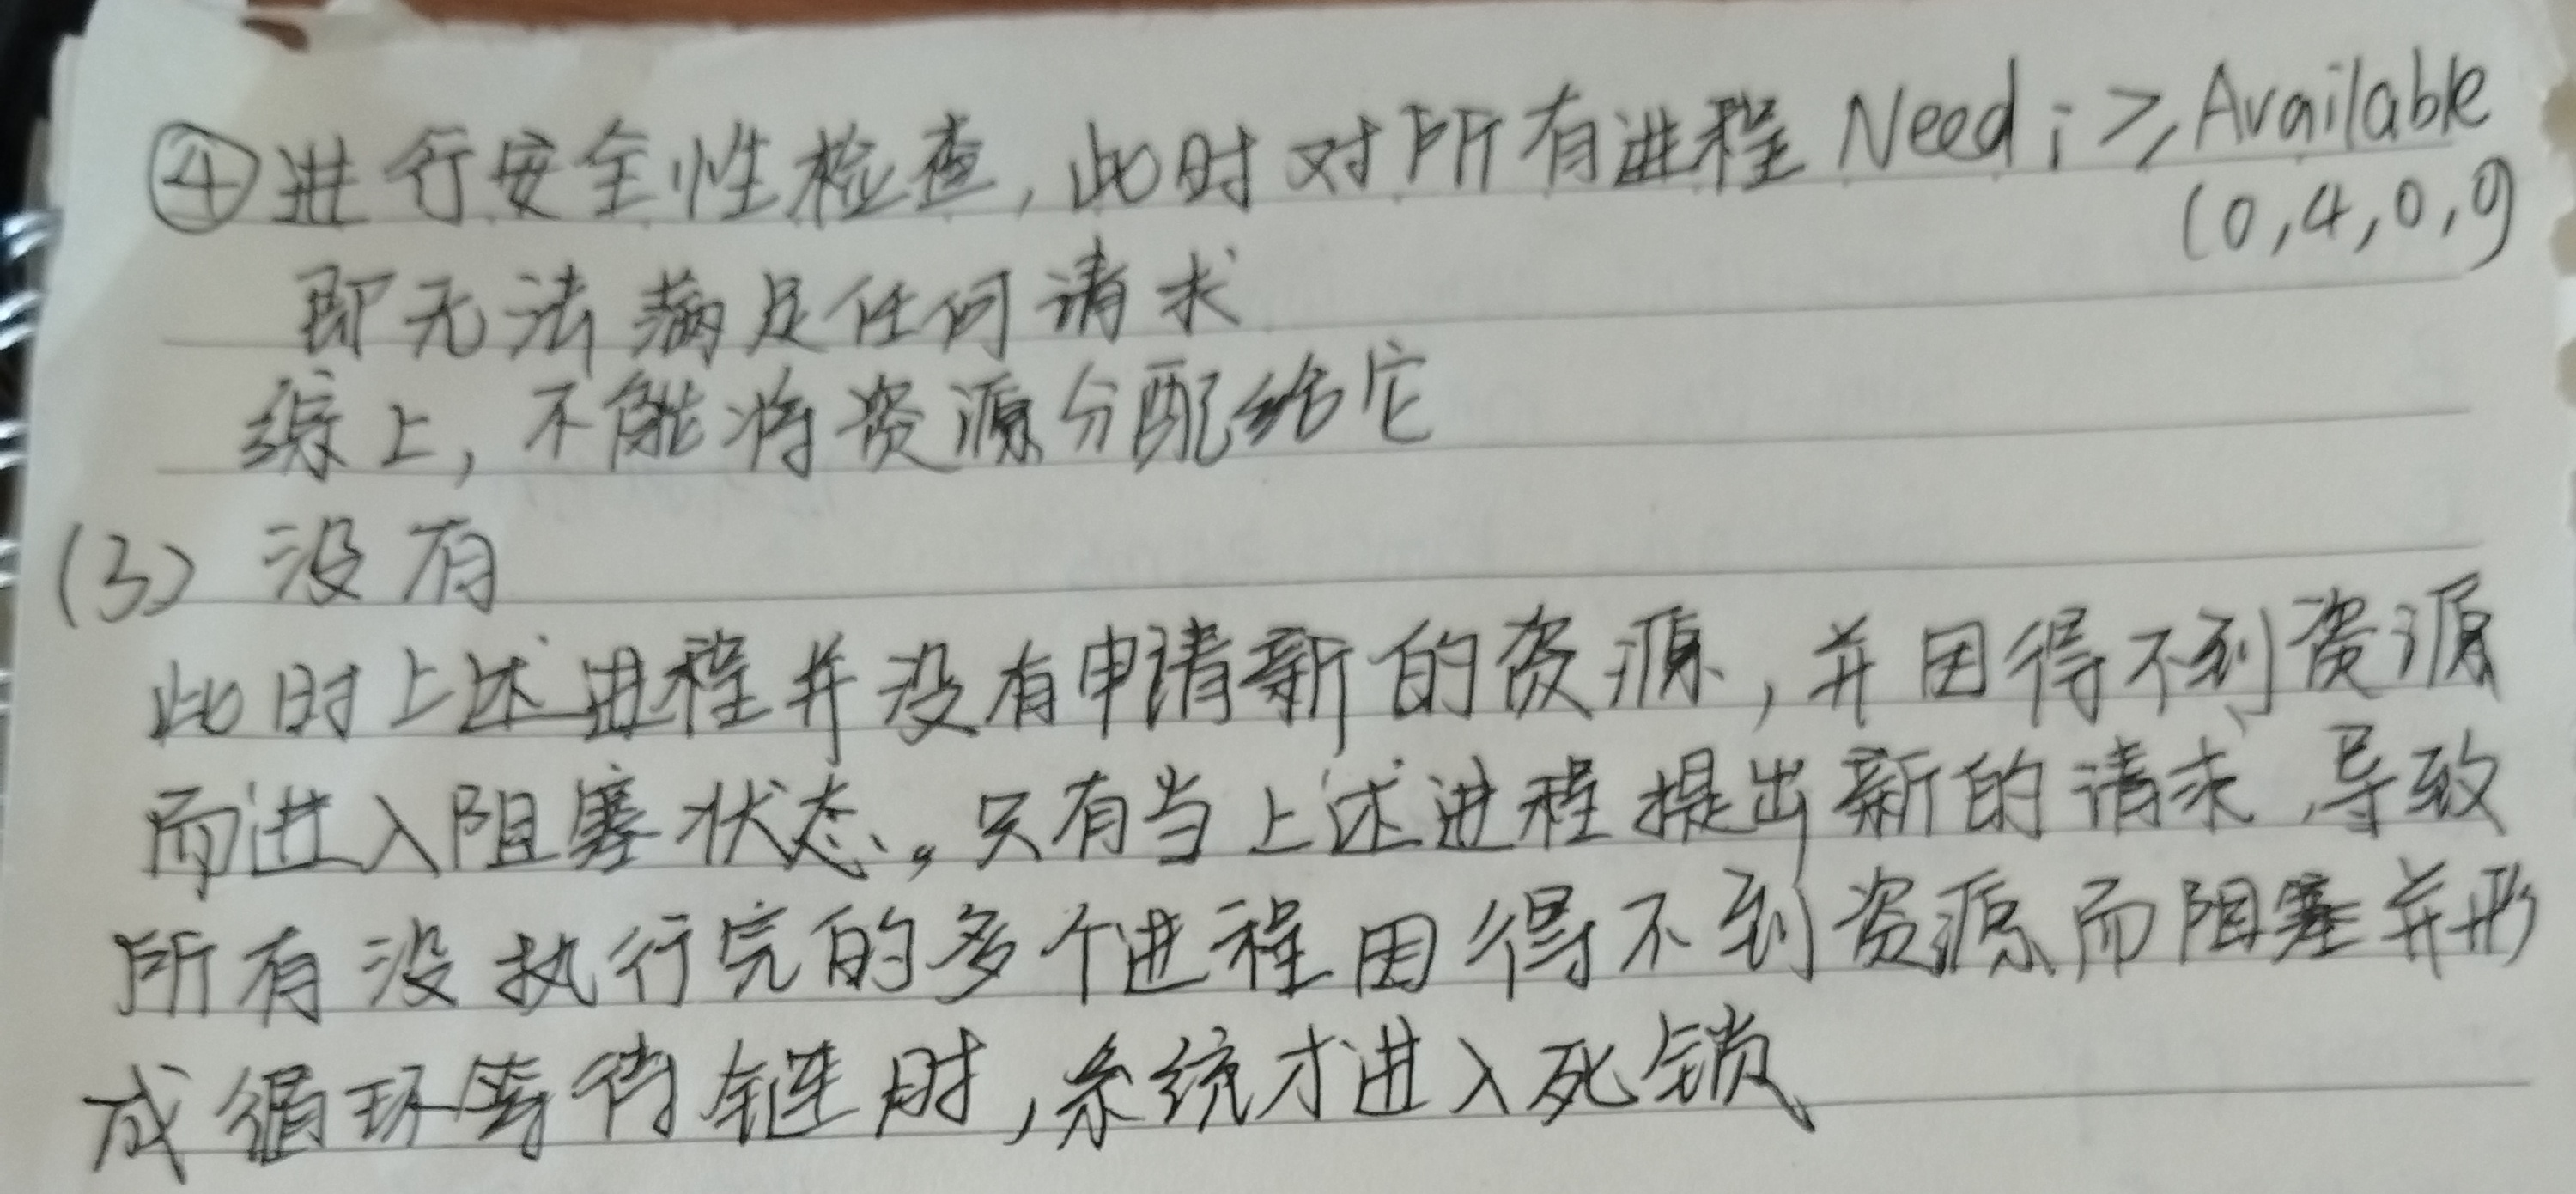 ④进行安全性检查,此时对所有进程 Need i ≥ Available
(0,4,0,0)
即无法满足任何请求
综上,不能将资源分配给它
(3) 没有
此时上述进程并没有申请新的资源,并因得不到资源
而进入阻塞状态。只有当上述进程提出新的请求,导致
所有没执行完的多个进程因得不到资源而阻塞并形
成循环等待链时,系统才进入死锁